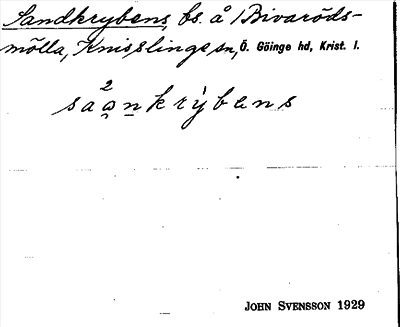 Sandkrybens, bs. å /Bivaröds-
mölla, Knisslinge sn, Ö. Göinge hd, Krist. l.
2
saa̤n̠krybens
JOHN SVENSSON 1929